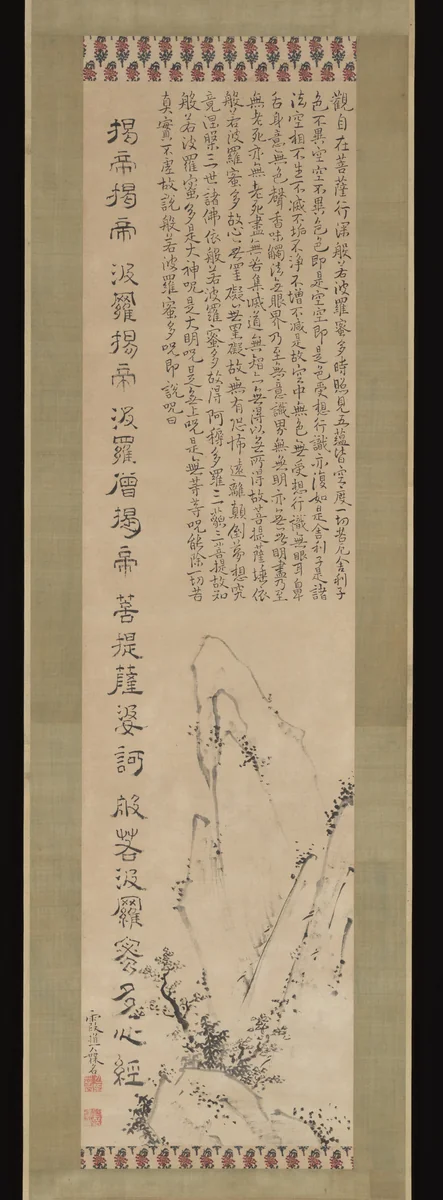 觀自在菩薩行深般若波羅蜜多時照見五蘊皆空度一切苦厄舍利子
色不異空空不異色色即是空空即是色受想行識亦復如是舍利子是諸
法空相不生不滅不垢不淨不增不減是故空中無色無受想行識無眼耳鼻
舌身意無色聲香味觸法無眼界乃至無意識界無無明亦無無明盡乃至
無老死亦無老死盡無苦集滅道無智亦無得以無所得故菩提薩埵依
般若波羅蜜多故心無罣礙無罣礙故無有恐怖遠離顛倒夢想究
竟涅槃三世諸佛依般若波羅蜜多故得阿耨多羅三藐三菩提故知
般若波羅蜜多是大神呪是大明呪是無上呪是無等等呪能除一切苦
真實不虛故說般若波羅蜜多呪即說呪曰
揭帝揭帝波羅揭帝波羅僧揭帝菩提薩婆訶般若波羅蜜多心經
霞道人